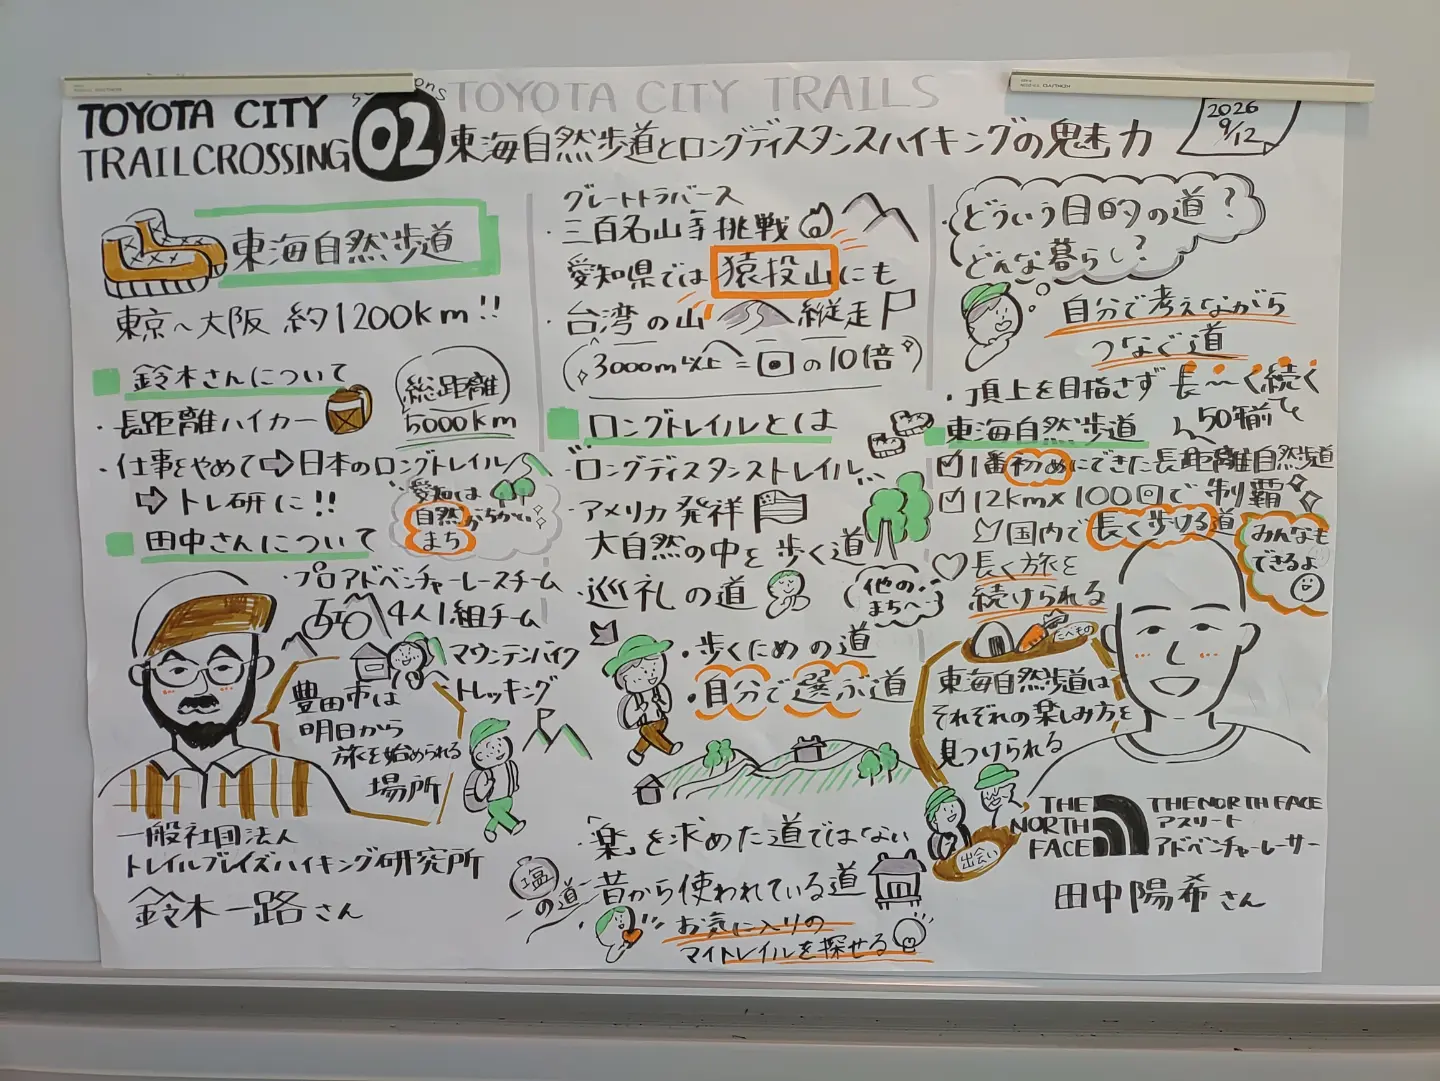 TOYOTA CITY TRAILS
TOYOTA CITY
TRAILCROSSING
02
東海自然歩道とロングディスタンスハイキングの魅力
2026
9/12
東海自然歩道
東京〜大阪 約1200km!!
鈴木さんについて
・長距離ハイカー
総距離
5000km
・仕事をやめて⇨日本のロングトレイル
⇨トレ研に!!
愛知は
自然がちかい
まち
田中さんについて
・プロアドベンチャーレースチーム
4人1組チーム
マウンテンバイク
トレッキング
豊田市は
明日から
旅を始められる
場所
一般社団法人
トレイルブレイズハイキング研究所
鈴木一路さん
グレートトラバース
・三百名山等挑戦
愛知県では猿投山にも
・台湾の山 縦走
(3000m以上=の10倍)
ロングトレイルとは
ロングディスタンストレイル
・アメリカ発祥
大自然の中を歩く道
・巡礼の道
(他のまちへ…)
・歩くための道
・自分で選ぶ道
「楽」を求めた道ではない
塩の道
昔から使われている道
お気に入りの
マイトレイルを探せる
・どういう目的の道?
どんな暮らし?
自分で考えながら
つなぐ道
・頂上を目指さず長〜く続く
東海自然歩道
50年前で
☑1番初めにできた長距離自然歩道
☑12km×100回で制覇
国内で長く歩ける道
みんなも
できるよ
♡長く旅を
続けられる
たべもの
東海自然歩道は
それぞれの楽しみ方を
見つけられる
出会い
THE
NORTH
FACE
THE NORTH FACE
アスリート
アドベンチャーレーサー
田中陽希さん